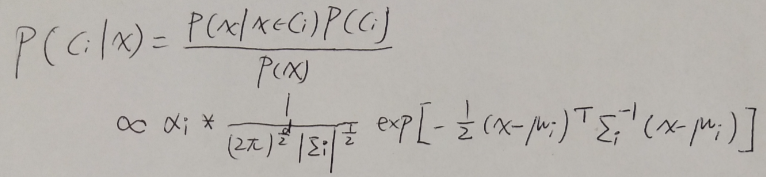 P(Ci|x) = P(x|x∈Ci)P(Ci) / P(x)
∝ αi * 1 / ((2π)^(d/2) |Σi|^(1/2)) exp[-1/2 (x-μi)^T Σi^-1 (x-μi)]